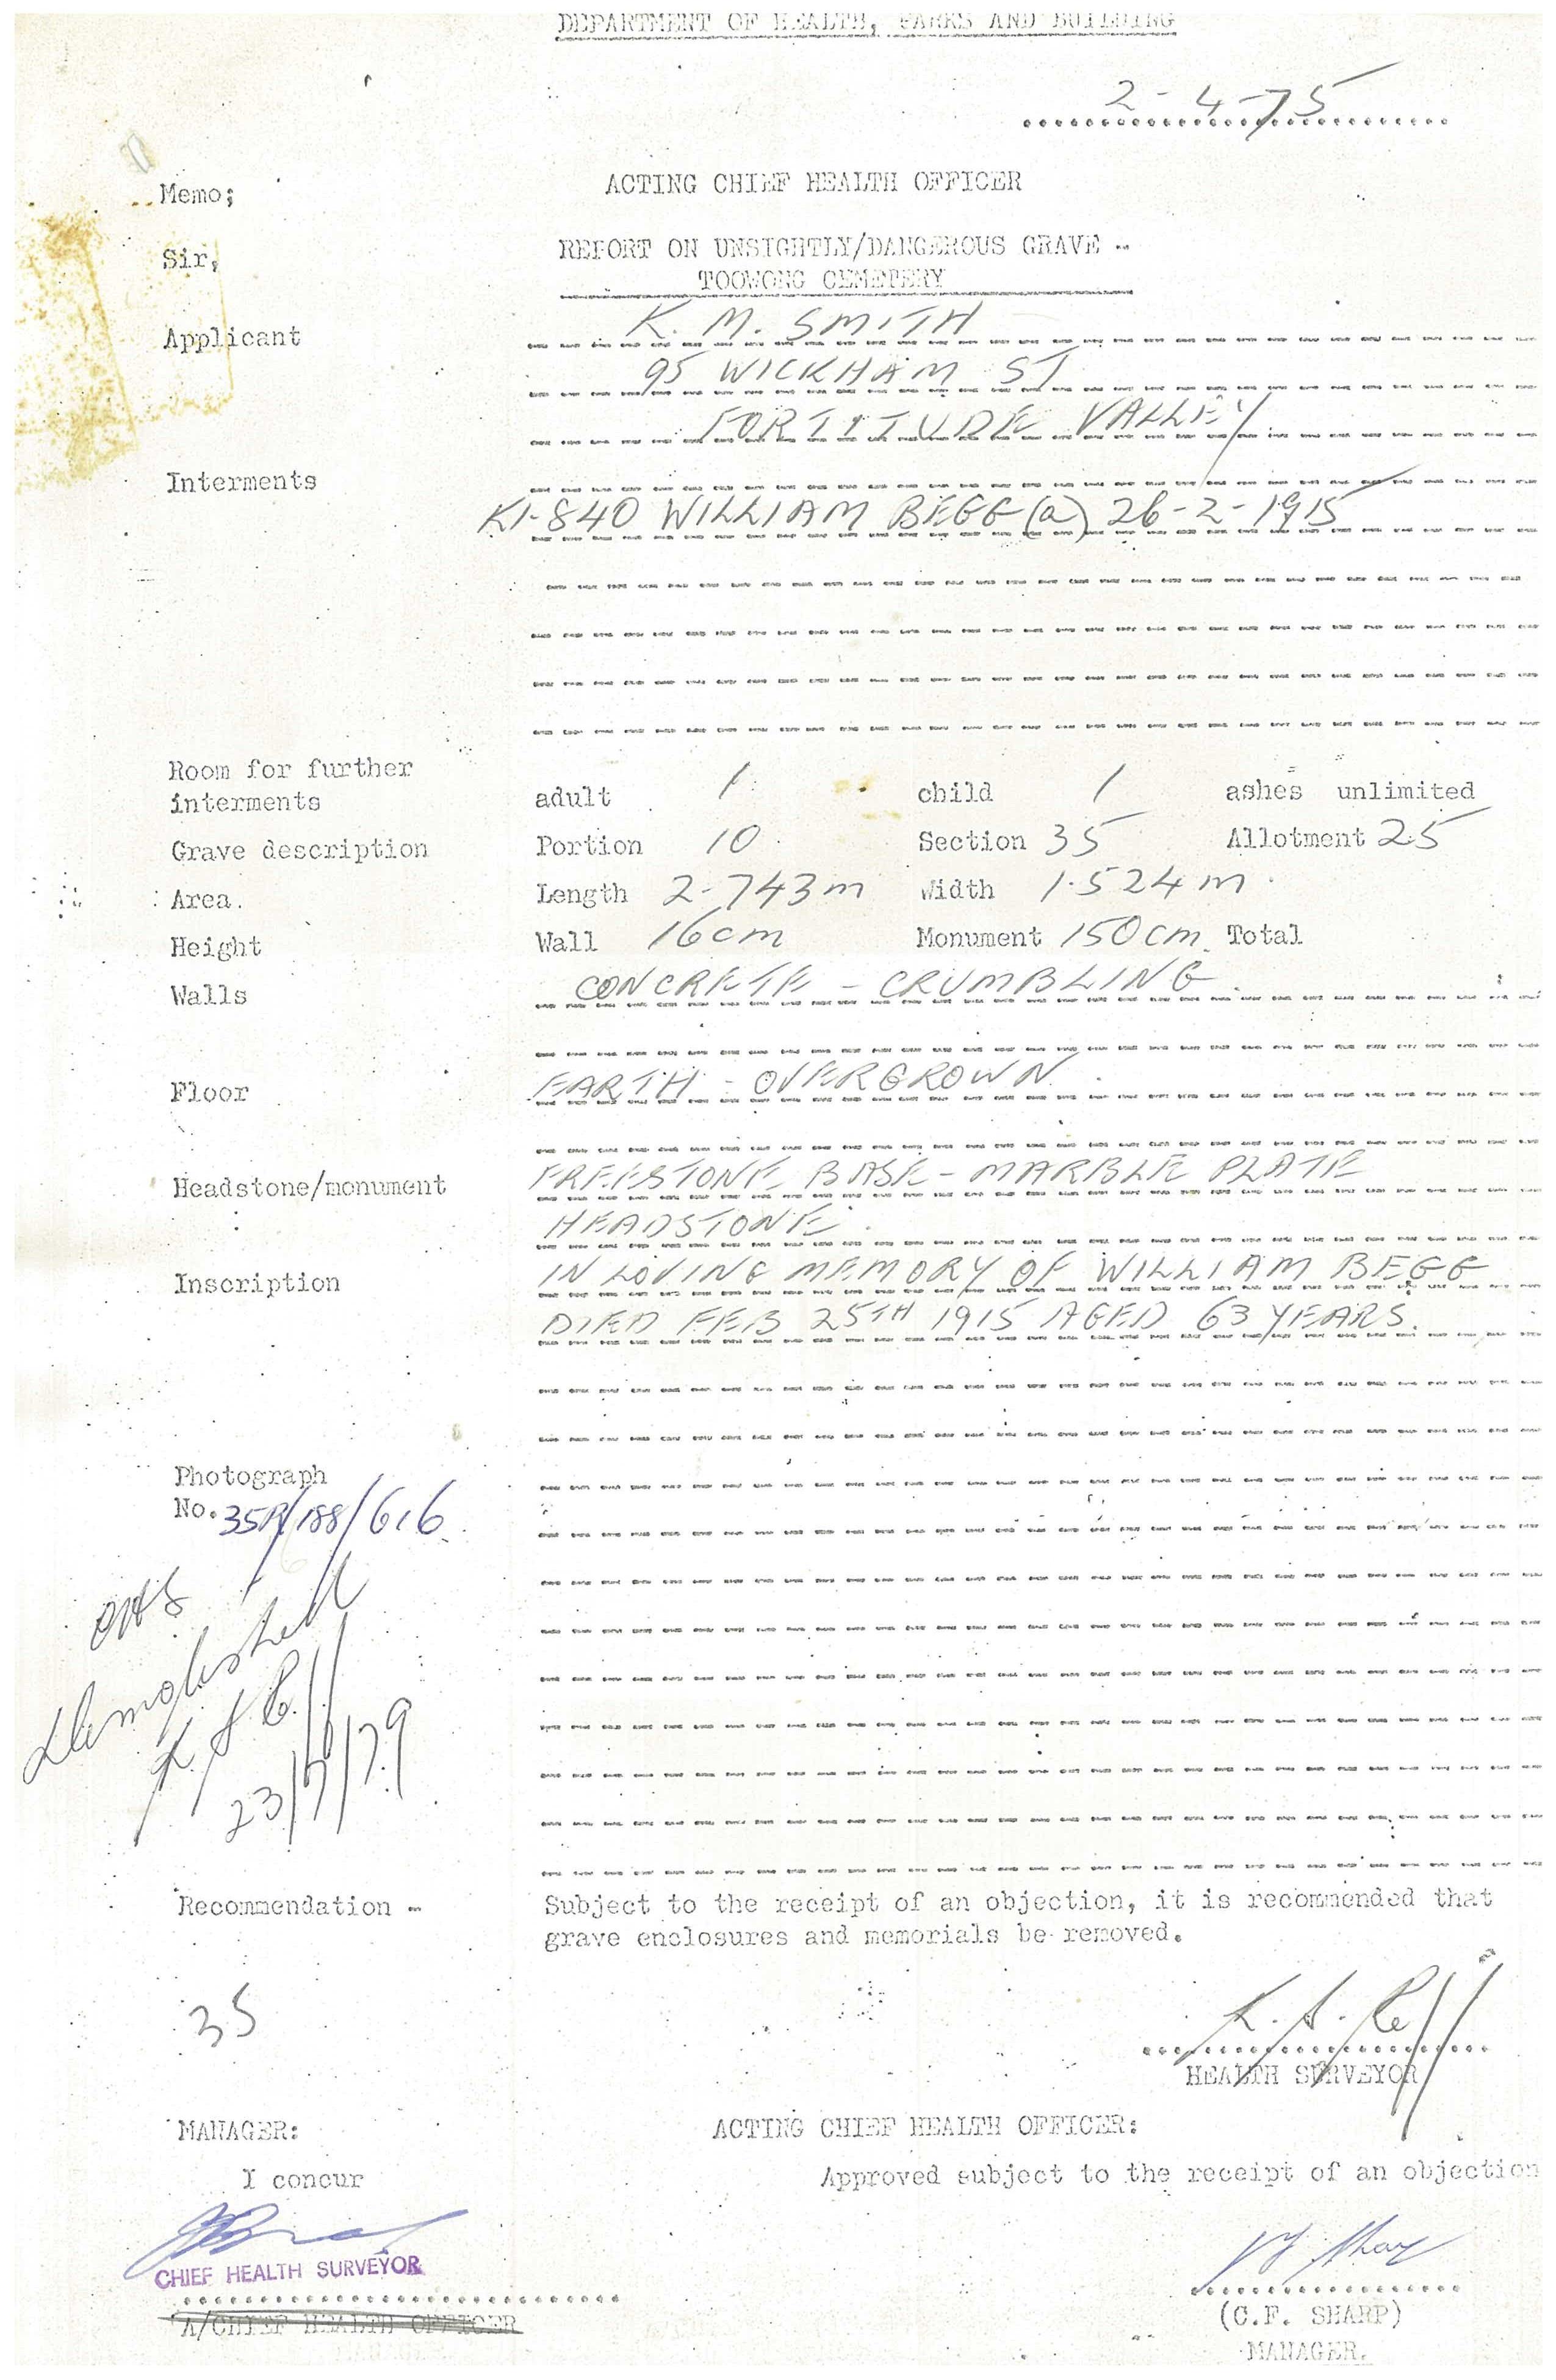 DEPARTMENT OF HEALTH, PARKS AND BUILDING
2-4-75
Memo; ACTING CHIEF HEALTH OFFICER
Sir, REPORT ON UNSIGHTLY/DANGEROUS GRAVE -
TOOWONG CEMETERY
Applicant K. M. SMITH
95 WICKHAM ST
FORTITUDE VALLEY
Interments
K1-840 WILLIAM BEGG (a) 26-2-1915
Room for further
interments adult 1 child 1 ashes unlimited
Grave description Portion 10 Section 35 Allotment 25
Area. Length 2.743m Width 1.524m
Height Wall 16cm Monument 150cm Total
Walls CONCRETE - CRUMBLING.
Floor EARTH - OVERGROWN.
Headstone/monument FREESTONE BASE - MARBLE PLATE
HEADSTONE.
Inscription IN LOVING MEMORY OF WILLIAM BEGG
DIED FEB 25TH 1915 AGED 63 YEARS.
Photograph
No. 35A/188/616
Demolished
23/7/79
Recommendation - Subject to the receipt of an objection, it is recommended that
grave enclosures and memorials be removed.
35
HEALTH SURVEYOR
MANAGER: ACTING CHIEF HEALTH OFFICER:
I concur Approved subject to the receipt of an objection
CHIEF HEALTH SURVEYOR
A/CHIEF HEALTH OFFICER
(C.F. SHARP)
MANAGER.